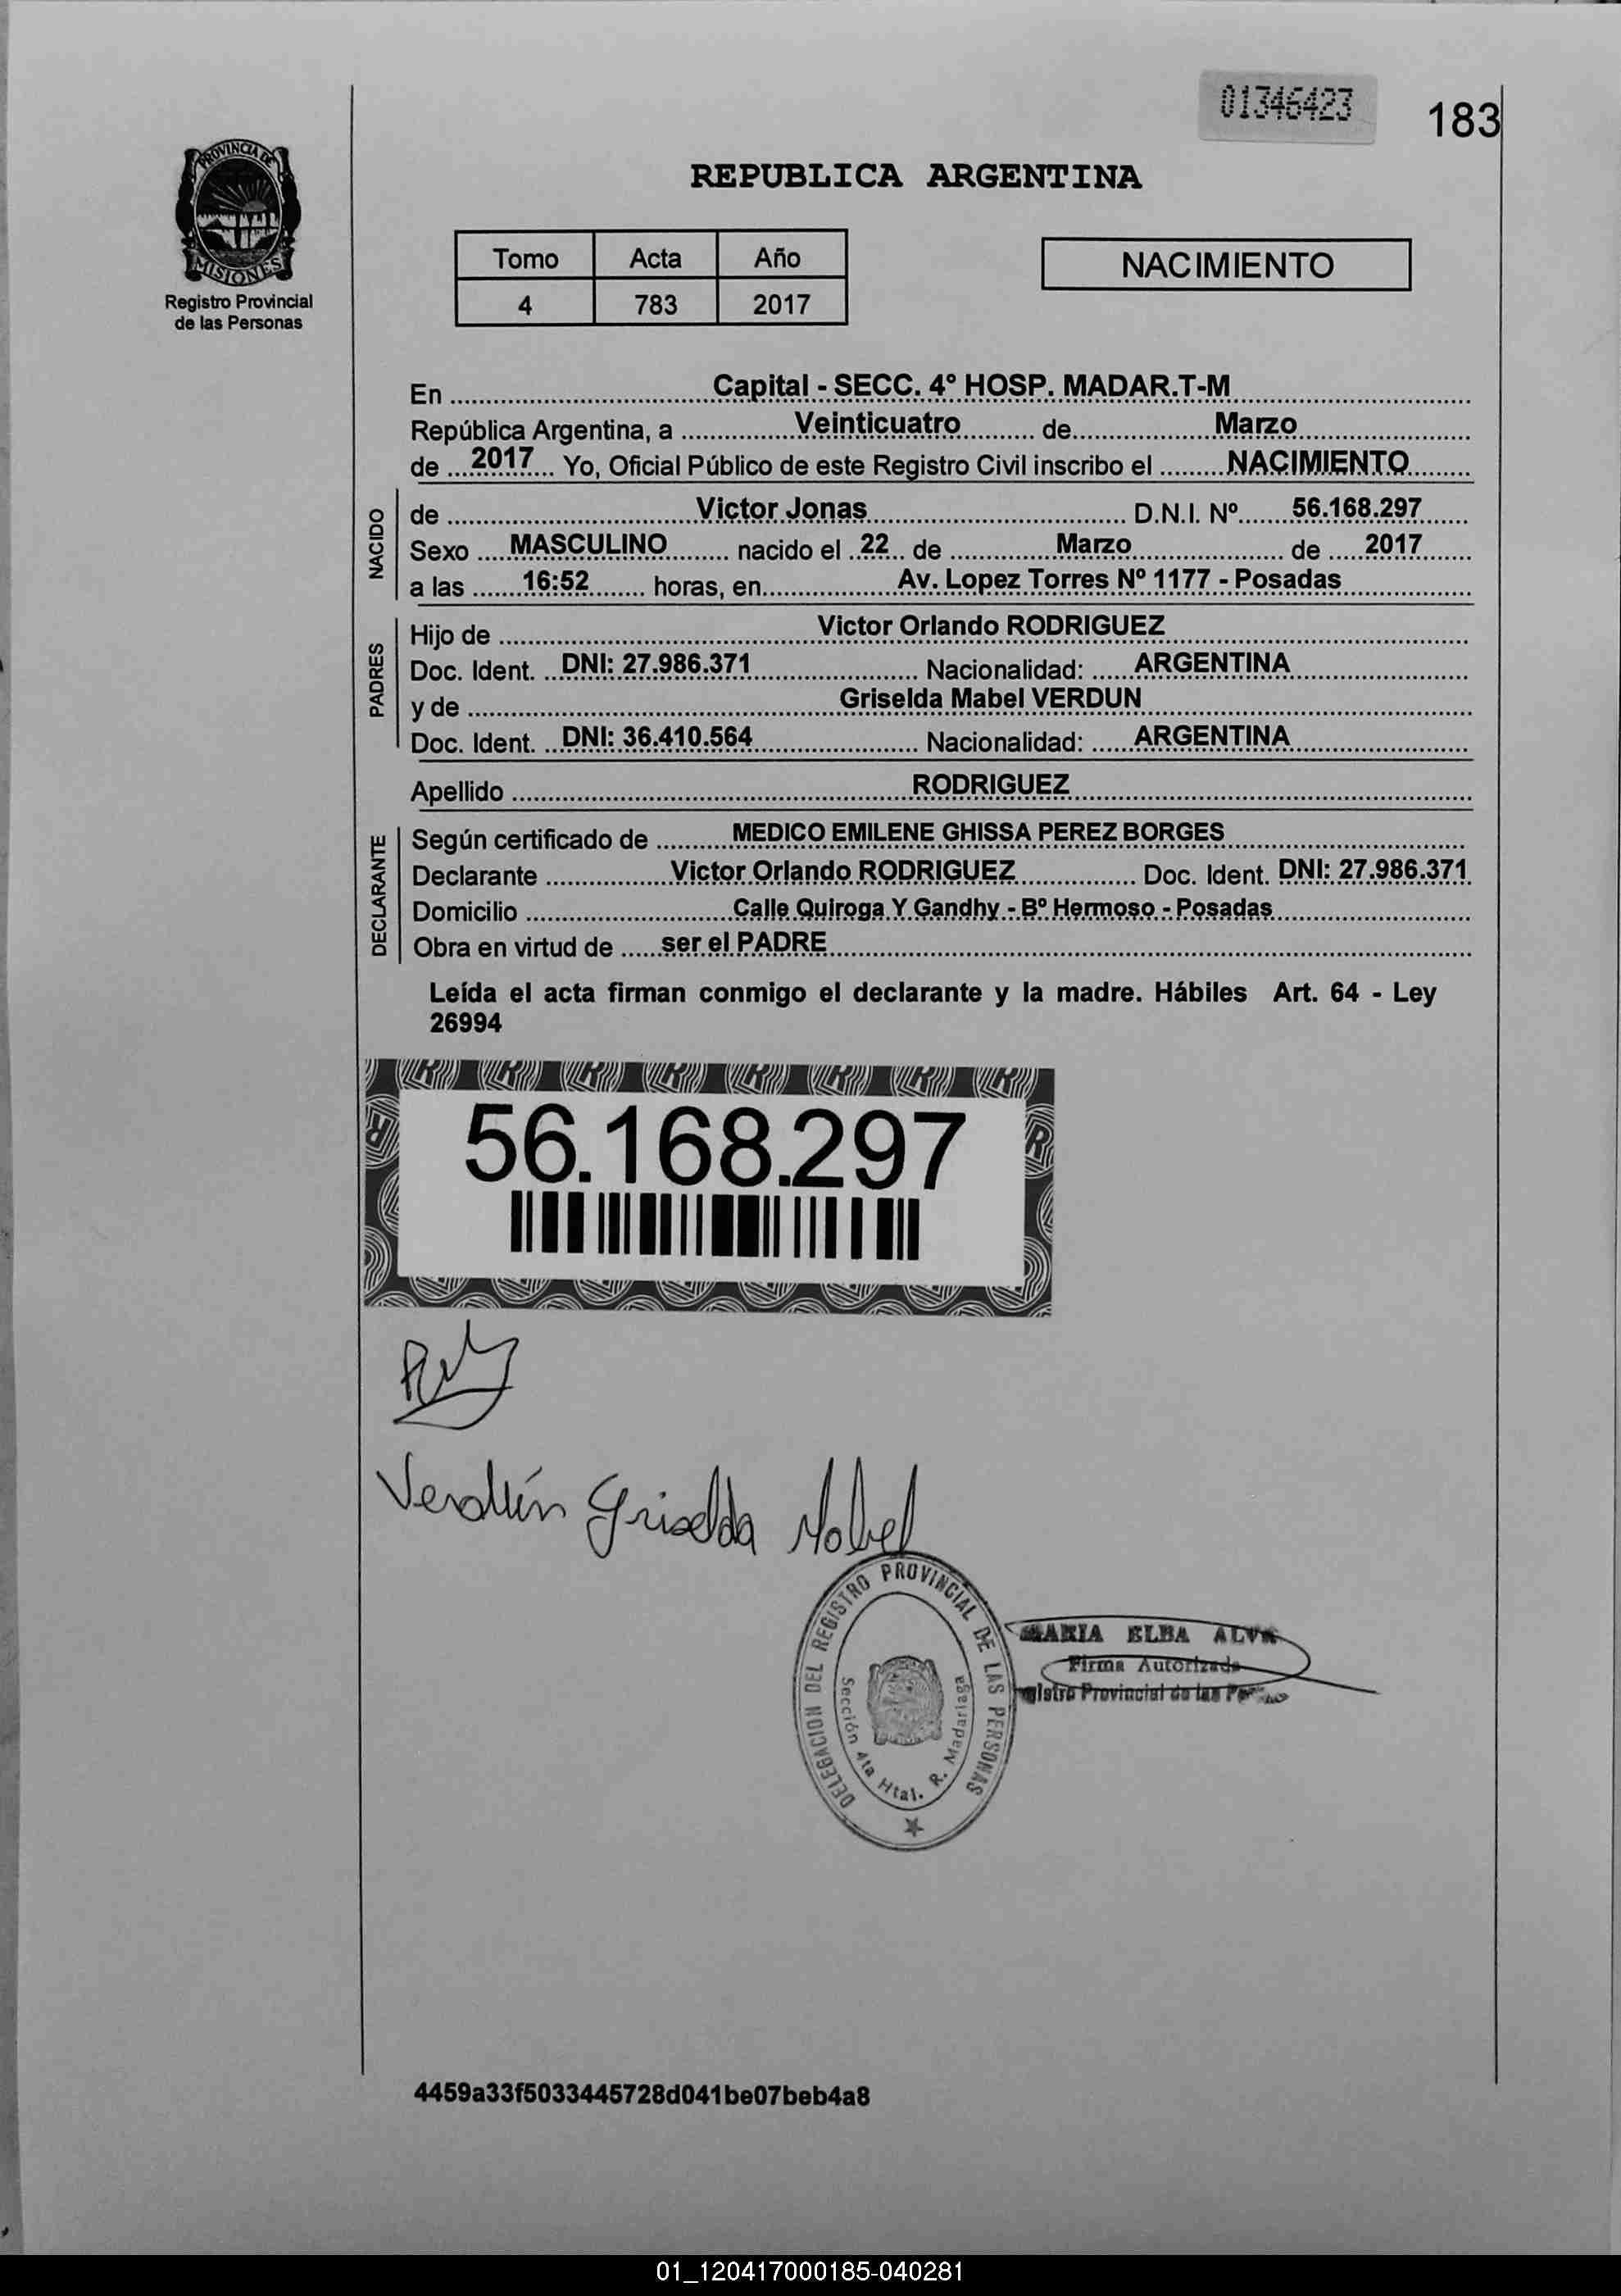 01346423
183
PROVINCIA DE
MISIONES
Registro Provincial
de las Personas
REPUBLICA ARGENTINA
Tomo Acta Año
4 783 2017
NACIMIENTO
En ........ Capital - SECC. 4º HOSP. MADAR.T-M ........
República Argentina, a ........ Veinticuatro ........ de ........ Marzo ........
de .... 2017 .... Yo, Oficial Público de este Registro Civil inscribo el ........ NACIMIENTO ........
NACIDO
de ........ Victor Jonas ........ D.N.I. Nº ........ 56.168.297 ........
Sexo .... MASCULINO ........ nacido el .. 22 .. de ........ Marzo ........ de .... 2017 ........
a las ........ 16:52 ........ horas, en ........ Av. Lopez Torres Nº 1177 - Posadas ........
PADRES
Hijo de ........ Victor Orlando RODRIGUEZ ........
Doc. Ident. ... DNI: 27.986.371 ........ Nacionalidad: ...... ARGENTINA ........
y de ........ Griselda Mabel VERDUN ........
Doc. Ident. ... DNI: 36.410.564 ........ Nacionalidad: ...... ARGENTINA ........
Apellido ........ RODRIGUEZ ........
DECLARANTE
Según certificado de ........ MEDICO EMILENE GHISSA PEREZ BORGES ........
Declarante ........ Victor Orlando RODRIGUEZ ........ Doc. Ident. DNI: 27.986.371
Domicilio ........ Calle Quiroga Y Gandhy - Bº Hermoso - Posadas ........
Obra en virtud de ...... ser el PADRE ........
Leída el acta firman conmigo el declarante y la madre. Hábiles Art. 64 - Ley
26994
56.168.297
Verdún Griselda Mabel
DELEGACION DEL REGISTRO PROVINCIAL DE LAS PERSONAS
Sección 4ta Htal. R. Madariaga
MARIA ELBA
Firma Autorizada
Provincial de las
4459a33f5033445728d041be07beb4a8
01_120417000185-040281